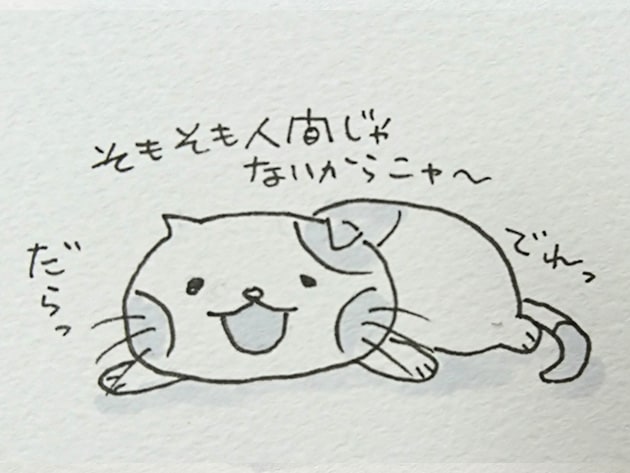 そもそも人間じゃ
ないからニャ～
だらっ
でれっ